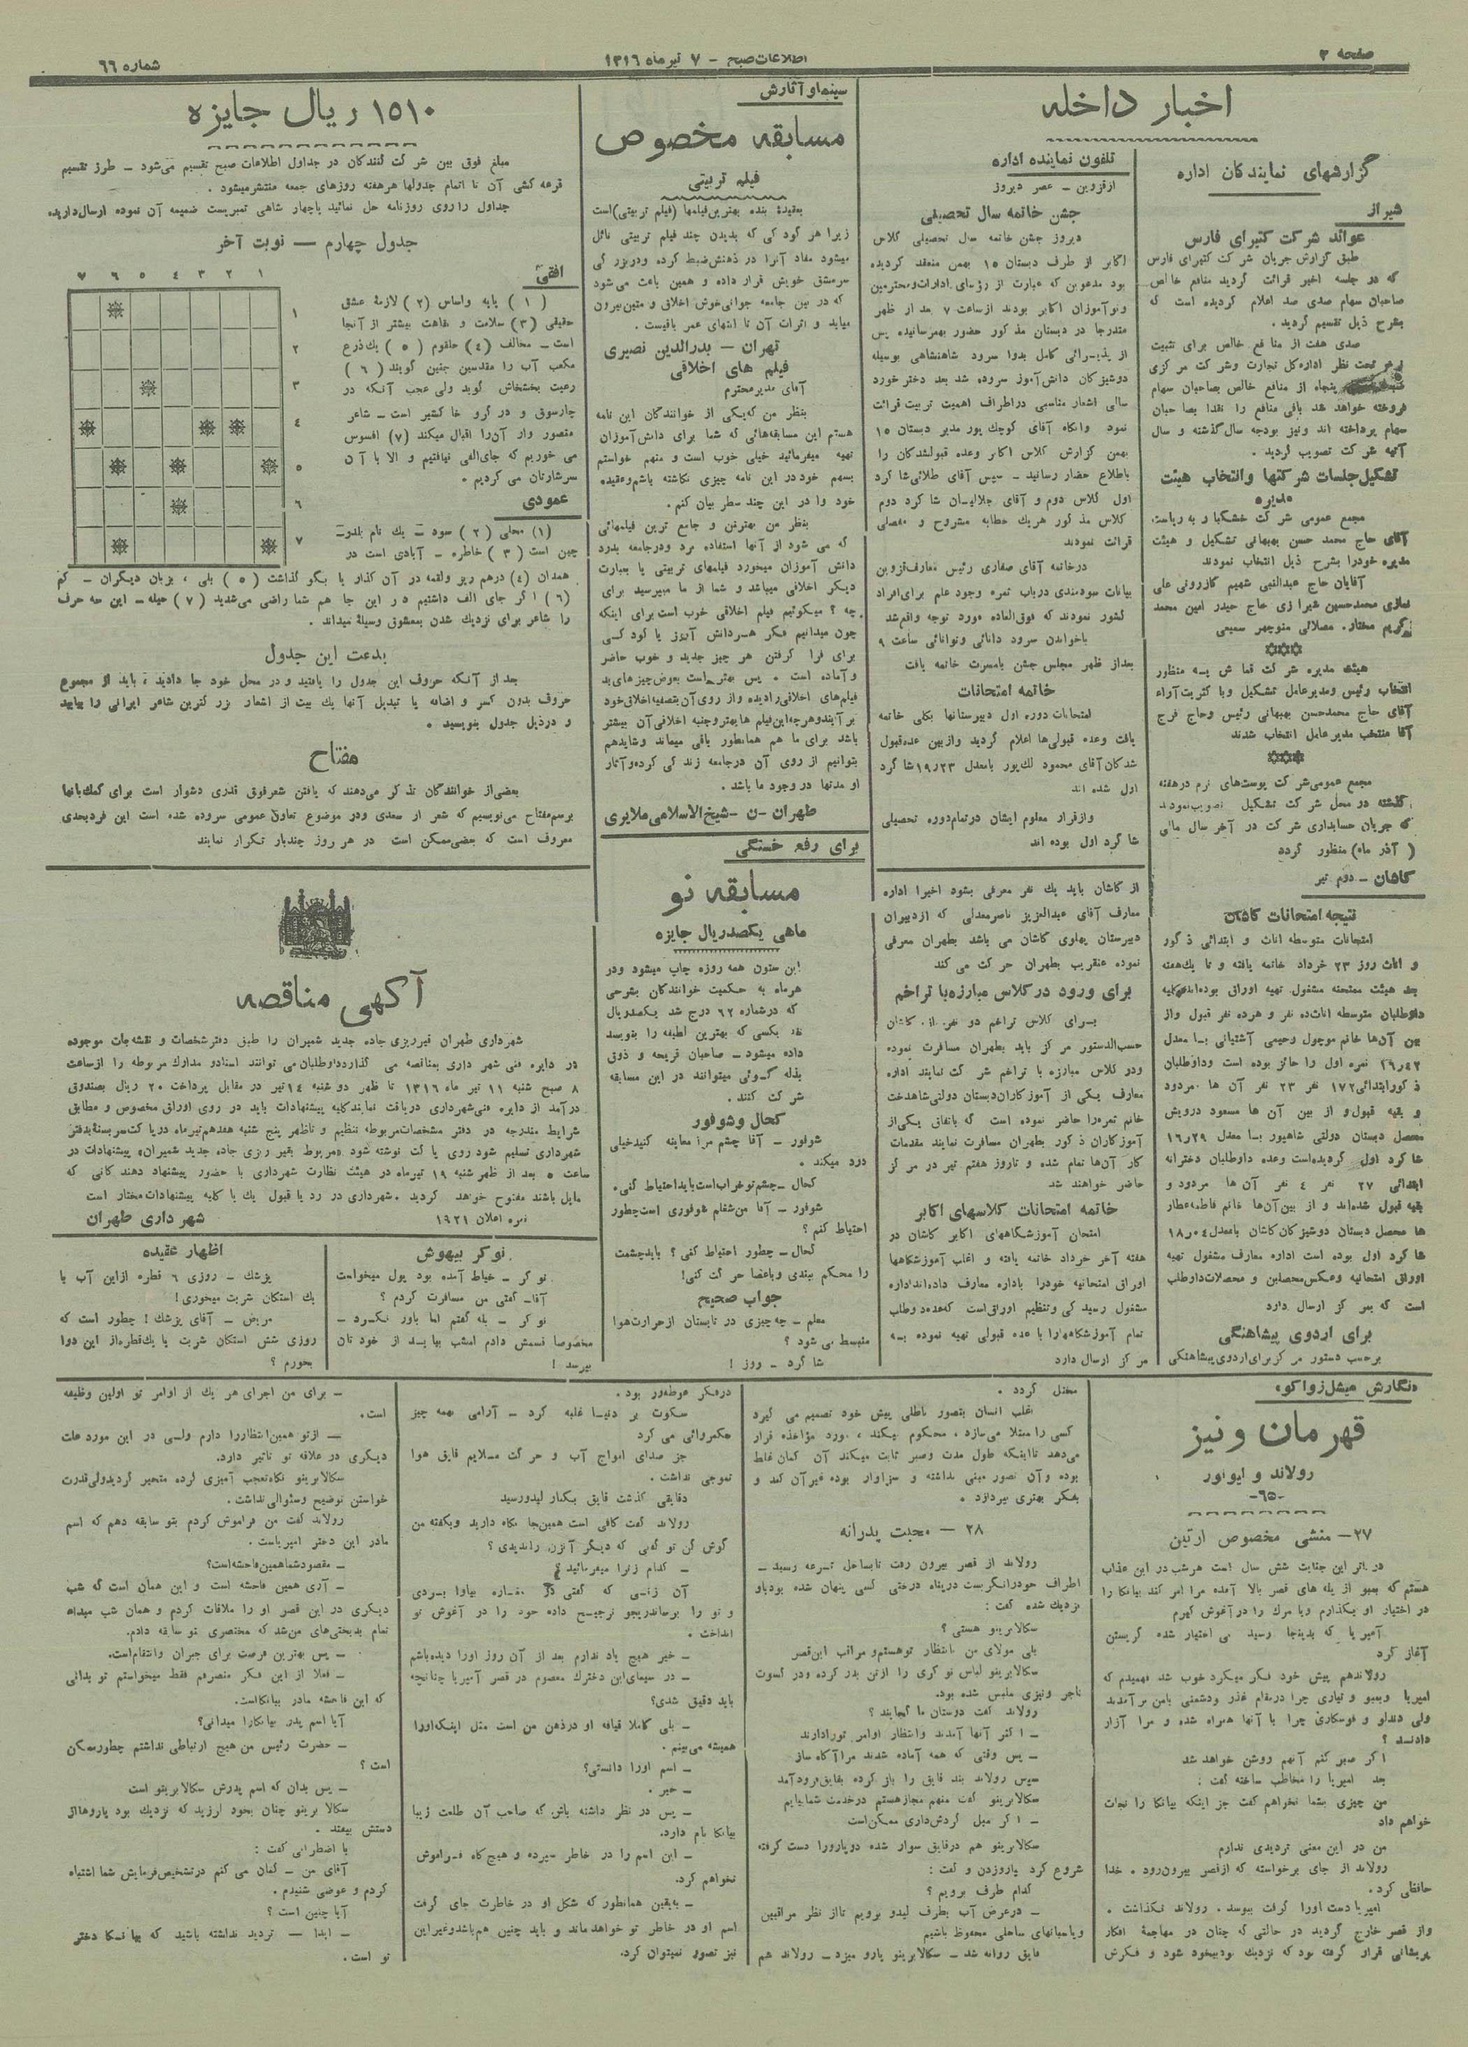 صفحه ۲
اطلاعات صبح - ۷ تیر ماه ۱۳۱۶
شماره ۶۶
اخبار داخله
گزارشهای نمایندگان اداره
شیراز
عوائد شرکت کتیرای فارس
طبق گزارش جریان شرکت کتیرای فارس
که در جلسه اخیر قرائت گردید منافع خالص
صاحبان سهام صدی صد اعلام گردیده است که
بشرح ذیل تقسیم گردید .
صدی هفت از منافع خالص برای تثبیت
تحت نظر اداره کل تجارت و شرکت مرکزی
پنجاه از منافع خالص بصاحبان سهام
فروخته خواهد شد باقی منافع را نقدا بصاحبان
سهام پرداخته اند ونیز بودجه سال گذشته و سال
آتیه شرکت تصویب گردید .
تشکیل جلسات شرکتها وانتخاب هیئت
مدیره
مجمع عمومی شرکت خشکبار به ریاست
آقای حاج محمد حسن بهبهانی تشکیل و هیئت
مدیره خودرا بشرح ذیل انتخاب نمودند
آقایان حاج عبدالنبی شهیم کازرونی علی
نمازی محمدحسین شیرازی حاج حیدر امین محمد
کریم مختار، مصلائی منوچهر سمیعی
هیئت مدیره شرکت قماش به منظور
انتخاب رئیس ومدیرعامل تشکیل وباکثریت آراء
آقای حاج محمدحسن بهبهانی رئیس وحاج فرج
آقا منتخب مدیرعامل انتخاب شدند
مجمع عمومی شرکت پوست‌های نرم درهفته
گذشته در محل شرکت تشکیل تصویب نمودند
که جریان حسابداری شرکت در آخر سال مالی
( آذر ماه) منظور گردد
کاشان - دوم تیر
نتیجه امتحانات کاشان
امتحانات متوسطه اناث و ابتدائی ذکور
و اناث روز ۲۳ خرداد خاتمه یافته و تا یکهفته
بعد هیئت ممتحنه مشغول تهیه اوراق بوده‌اند کلیه
داوطلبان متوسطه اناث ده نفر و هرده نفر قبول واز
بین آنها خانم موچول رحیمی آشتیانی با معدل
۱۶٫۴۲ نمره اول را حائز بوده است وداوطلبان
ذکور ابتدائی ۱۷۲ نفر ۲۳ نفر آن ها مردود
و بقیه قبول و از بین آن ها مسعود درویش
محصل دبستان دولتی شاهپور با معدل ۱۶٫۲۹
شاگرد اول گردیده است وعده داوطلبان دخترانه
ابتدائی ۲۷ نفر ۴ نفر آن ها مردود و
بقیه قبول شده‌اند و از بین آن‌ها خانم فاطمه عطار
ها محصل دبستان دوشیزگان کاشان بامعدل ۱۸٫۰۴
شاگرد اول بوده است اداره معارف مشغول تهیه
اوراق امتحانیه وعکس محصلین و محصلات داوطلب
است که بمرکز ارسال دارد
برای اردوی پیشاهنگی
برحسب دستور مرکز برای اردوی پیشاهنگی
تلفون نماینده اداره
ازقزوین - عصر دیروز
جشن خاتمه سال تحصیلی
دیروز جشن خاتمه سال تحصیلی کلاس
اکابر از طرف دبستان ۱۵ بهمن منعقد گردیده
بود مدعوین که عبارت از رؤسای ادارات ومحترمین
ونوآموزان اکابر بودند ازساعت ۷ بعد از ظهر
متدرجا در دبستان مذکور حضور بهمرسانیده پس
از پذیرائی کامل بدوا سرود شاهنشاهی بوسیله
دوشیزگان دانش‌آموز سروده شد بعد دختر خورد
سالی اشعار مناسبی دراطراف اهمیت تربیت قرائت
نمود وآنگاه آقای کوچک پور مدیر دبستان ۱۵
بهمن گزارش کلاس اکابر وعده قبولشدگان را
باطلاع حضار رسانید - سپس آقای طلائی شاگرد
اول کلاس دوم و آقای جلالیان شاگرد دوم
کلاس مذکور هریک خطابه مشروح و مفصلی
قرائت نمودند
درخاتمه آقای صفاری رئیس معارف قزوین
بیانات سودمندی درباب ثمره وجود علم برای افراد
کشور نمودند که فوق‌العاده مورد توجه واقع شد
باخواندن سرود دانائی وتوانائی ساعت ۹
بعداز ظهر مجلس جشن بامسرت خاتمه یافت
خاتمه امتحانات
امتحانات دوره اول دبیرستانها بکلی خاتمه
یافت وعده قبولی‌ها اعلام گردید وازبین عده قبول
شدگان آقای محمود لک‌پور بامعدل ۱۹٫۲۳ شاگرد
اول شده اند
وازقرار معلوم ایشان درتمام دوره تحصیلی
شاگرد اول بوده اند
از کاشان باید یک نفر معرفی بشود اخیرا اداره
معارف آقای عبدالعزیز ناصر معدلی که از دبیران
دبیرستان پهلوی کاشان می باشد بطهران معرفی
نموده عنقریب بطهران حرکت می کند
برای ورود در کلاس مبارزه با تراخم
برای کلاس تراخم دو نفر از کاشان
حسب‌الدستور مرکز باید بطهران مسافرت نموده
ودر کلاس مبارزه با تراخم شرکت نمایند اداره
معارف یکی از آموزگاران دبستان دولتی شاهدخت
خانم ثمره را حاضر نموده است که باتفاق یکی از
آموزگاران ذکور بطهران مسافرت نمایند مقدمات
کار آن‌ها تمام شده و تاروز هفتم تیر در مرکز
حاضر خواهند شد
خاتمه امتحانات کلاسهای اکابر
امتحان آموزشگاههای اکابر کاشان در
هفته آخر خرداد خاتمه یافته و اغلب آموزشگاهها
اوراق امتحانیه خودرا باداره معارف داده‌اند اداره
مشغول رسیدگی وتنظیم اوراق است که عده داوطلب
تمام آموزشگاهها را با عده قبولی تهیه نموده به
مرکز ارسال دارد
سینما و آثارش
مسابقه مخصوص
فیلم تربیتی
بعقیده بنده بهترین فیلمها (فیلم تربیتی) است
زیرا هر کودکی که بدیدن چند فیلم تربیتی نائل
میشود مفاد آنرا در ذهنش ضبط کرده ودربزرگی
سرمشق خویش قرار داده و همین باعث می‌شود
که در بین جامعه جوانی خوش اخلاق و متین بیرون
میاید و اثرات آن تا انتهای عمر باقیست .
تهران - بدرالدین نصیری
فیلم های اخلاقی
آقای مدیر محترم
بنظر من که یکی از خوانندگان این نامه
هستم این مسابقه‌هائی که شما برای دانش‌آموزان
تهیه میفرمائید خیلی خوب است و منهم خواستم
بسهم خود در این نامه چیزی نگاشته باشم وعقیده
خود را در این چند سطر بیان کنم .
بنظر من بهترین و جامع ترین فیلمهائی
که می شود از آنها استفاده برد ودرجامعه بدرد
دانش آموزان میخورد فیلمهای تربیتی یا بعبارت
دیگر اخلاقی میباشد و شما از ما میپرسید برای
چه ؟ میگوئیم فیلم اخلاقی خوب است برای اینکه
چون میدانیم فکر هر دانش آموز یا کودکی
برای فرا گرفتن هر چیز جدید و خوب حاضر
و آماده است . پس بهتر است بعوض چیزهای بد
فیلم‌های اخلاقی را دیده واز روی آن بتصفیه اخلاق خود
برآیند وهرچه این فیلم ها بهتر وجنبه اخلاقی آن بیشتر
باشد برای ما هم همانطور باقی میماند وشاید هم
بتوانیم از روی آن درجامعه زندگی کرده و آثار
او مدتها در وجود ما باشد .
طهران - ن - شیخ‌الاسلامی ملایری
برای رفع خستگی
مسابقه نو
ماهی یکصد ریال جایزه
این ستون همه روزه چاپ میشود ودر
هرماه به حکمیت خوانندگان بشرحی
که درشماره ۶۲ درج شد یکصد ریال
نقد بکسی که بهترین لطیفه را بنویسد
داده میشود - صاحبان قریحه و ذوق
بذله گوئی میتوانند در این مسابقه
شرکت کنند .
کحال وشوفور
شوفور - آقا چشم مرا معاینه کنید خیلی
درد میکند .
کحال - چشم تو خراب است باید احتیاط کنی.
شوفور - آقا من شغلم شوفوری است چطور
احتیاط کنم ؟
کحال - چطور احتیاط کنی ؟ باید چشمت
را محکم ببندی وباعصا حرکت کنی!
جواب صحیح
معلم - چه چیزی در تابستان از حرارت هوا
منبسط می شود ؟
شاگرد - روز !
۱۵۱۰ ریال جایزه
مبلغ فوق بین شرکت کنندگان در جداول اطلاعات صبح تقسیم می‌شود - طرز تقسیم
قرعه کشی آن تا اتمام جدولها هرهفته روزهای جمعه منتشر میشود .
جداول را روی روزنامه حل نمائید باچهار شاهی تمبر پست ضمیمه آن نموده ارسال دارید.
جدول چهارم - نوبت آخر
۱ ۲ ۳ ۴ ۵ ۶ ۷
۱
۲
۳
۴
۵
۶
۷
افقی
( ۱ ) پایه واساس (۲) لازمهٔ عشق
حقیقی (۳) سلامت و نقاهت بیشتر از آنجا
است - مخالف (۴) حلقوم (۵) یک ذرع
مکعب آب را مقدسین چنین گویند (۶)
رعیت بخشخاش گوید ولی عجب آنکه در
چارسوق و در گرو خاکشیر است - شاعر
منصور وار آن را اقبال میکند (۷) افسوس
می خوریم که جای الفی نیافتیم و الا با آن
سرشارتان می کردیم .
عمودی
(۱) محلی (۲) سود - یک نام بلدو-
چین است (۳) خاطره - آبادی است در
همدان (۴) درهم ریز ولقمه در آن گذار یا بگو گذاشت (۵) بلی ، بزبان دیگران - کم
(۶) اگر جای الف داشتیم در این جا هم شما راضی می‌شدید (۷) حیله - این سه حرف
را شاعر برای نزدیک شدن بمعشوق وسیله میداند .
بدعت این جدول
بعد از آنکه حروف این جدول را یافتید و در محل خود جا دادید ، باید از مجموع
حروف بدون کسر و اضافه یا تبدیل آنها یک بیت از اشعار بزرگترین شاعر ایرانی را بیابید
و درذیل جدول بنویسید .
مفتاح
بعضی از خوانندگان تذکر می‌دهند که یافتن شعر فوق قدری دشوار است برای کمک بآنها
برسم مفتاح می‌نویسیم که شعر از سعدی ودر موضوع تعاون عمومی سروده شده است این فرد بحدی
معروف است که بعضی ممکن است در هر روز چندبار تکرار نمایند
آگهی مناقصه
شهرداری طهران قیرریزی جاده جدید شمیران را طبق دفتر شخصات و نقشه‌جات موجوده
در دایره فنی شهر داری بمناقصه می گذارد داوطلبان می توانند اسناد و مدارک مربوطه را از ساعت
۸ صبح شنبه ۱۱ تیر ماه ۱۳۱۶ تا ظهر دو شنبه ۱۴ تیر در مقابل پرداخت ۲۰ ریال بصندوق
درآمد از دایره فنی شهرداری دریافت نمایند کلیه پیشنهادات باید در روی اوراق مخصوص و مطابق
شرایط مندرجه در دفتر مشخصات مربوطه تنظیم و تاظهر پنج شنبه هفدهم تیر ماه در پاکت سربسته بدفتر
شهرداری تسلیم شود روی پاکت نوشته شود «مربوط بقیر ریزی جاده جدید شمیران» پیشنهادات در
ساعت ۵ بعد از ظهر شنبه ۱۹ تیرماه در هیئت نظارت شهرداری با حضور پیشنهاد دهندگانی که
مایل باشند مفتوح خواهد گردید . شهرداری در رد یا قبول یک یا کلیه پیشنهادات مختار است
نمره اعلان ۱۹۲۱
شهرداری طهران
نوکر بیهوش
نوکر - خیاط آمده بود پول میخواست
آقا - گفتی من مسافرت کردم ؟
نوکر - بله گفتم اما باور نکرد -
مخصوصا قسمش دادم امشب بیاید از خودتان
بپرسد !
اظهار عقیده
پزشک - روزی ۶ قطره ازاین آب با
یک استکان شربت میخوری !
مریض - آقای پزشک ! چطور است که
روزی شش استکان شربت با یک قطره از این دوا
بخورم ؟
«نگارش میشل زواکو»
قهرمان ونیز
رولاند و لیونور
-۶۵-
۲۷- منشی مخصوص ارتین
در اثر این جنایت شش سال است هرشب در این عذاب
هستم که بمبو از پله های قصر بالا آمده مرا امر کند بیانکا را
در اختیار او بگذارم ویا مرگ را در آغوش گیرم
آمپریا که بدینجا رسید بی اختیار شده گریستن
آغاز کرد
رولاند هم پیش خود فکر میکرد خوب شد فهمیدم که
امپریا وبمبو و تیاری چرا درمقام غدر ودشمنی بامن برآمدند
ولی دندلو و فوسکاری چرا با آنها همراه شده و مرا آزار
دادند ؟
اگر صبر کنم آنهم روشن خواهد شد
بعد امپریا را مخاطب ساخته گفت :
من چیزی بشما نخواهم گفت جز اینکه بیانکا را نجات
خواهم داد
من در این معنی تردیدی ندارم
رولاند از جای برخواسته که ازقصر بیرون رود . خدا
حافظی کرد .
امپریا دست اورا گرفت ببوسد . رولاند نگذاشت .
واز قصر خارج گردید در حالتی که چنان در مهاجمهٔ افکار
پریشانی قرار گرفته بود که نزدیک بود بیخود شود و فکرش
مختل گردد .
اغلب انسان بتصور باطلی پیش خود تصمیم می گیرد
کسی را مبتلا می‌سازد . محکوم میکند ، مورد مؤاخذه قرار
می‌دهد تااینکه طول مدت وصبر ثابت میکند آن گمان غلط
بوده وآن تصور مبنی نداشته و سزاوار بوده غیر آن کند و
بفکر بهتری بپردازد .
۲۸ - محبت پدرانه
رولاند از قصر بیرون رفت تابساحل نسرعه رسید -
اطراف خودرا نگریست درپناه درختی کسی پنهان شده بود باو
نزدیک شده گفت :
سکالابرینو هستی ؟
بلی مولای من بانتظار تو هستم ومراقب این قصر
سکالابرینو لباس نوکری را ازتن بدر کرده ودر کسوت
تاجر ونیزی ملبس شده بود.
رولاند گفت دوستان ما کجایند ؟
- اکثر آنها آمدند وانتظار اوامر تورادارند
- پس وقتی که همه آماده شدند مرا آگاه ساز
سپس رولاند بند قایق را باز کرده بقایق درود آمد
سکالابرینو گفت منهم مجاز هستم درخدمت شما بیایم
- اگر میل گردش داری ممکن است
سکالابرینو هم درقایق سوار شده دوپارو را دست گرفته
شروع کرد پاروزدن و گفت :
کدام طرف برویم ؟
- درعرض آب بطرف لیدو برویم تااز نظر مراقبین
وپاسبانهای ساحلی محفوظ باشیم
قایق روانه شد - سکالابرینو پارو میزد - رولاند هم
درفکر غوطه‌ور بود .
سکوت بر دنیا غلبه کرد - آرامی بهمه چیز
حکمروائی می کرد
جز صدای امواج آب و حرکت ملایم قایق هوا
تموجی نداشت .
دقایقی گذشت قایق بکنار لیدو رسید
رولاند گفت کافی است همین‌جا نگاه دارید وبگفته من
گوش کن تو گفتی که دیگر آنزن را ندیدی ؟
- کدام زنرا میفرمائید ؟
آن زنی که گفتی در مغاره بپاوا بردی
و تو را بوساندریجو ترجیح داده خود را در آغوش تو
انداخت .
- خیر هیچ یاد ندارم بعد از آن روز اورا دیده باشم
- در سیمای این دخترک معصوم در قصر آمپریا چنانچه
باید دقیق شدی ؟
- بلی کاملا قیافه او درذهن من است مثل اینکه اورا
همیشه می‌بینم .
- اسم اورا دانستی؟
- خیر .
- پس در نظر داشته باش که صاحب آن طلعت زیبا
بیانکا نام دارد.
- این اسم را در خاطر سپرده و هیچگاه فراموش
نخواهم کرد.
- بیقین همانطور که شکل او در خاطرت جای گرفت
اسم او در خاطر تو خواهد ماند و باید چنین هم باشد وغیر این
نیز تصور نمیتوان کرد.
- برای من اجرای هر یک از اوامر تو اولین وظیفه
است.
- ازتو همین انتظار را دارم ولی در این مورد علت
دیگری در علاقه تو تاثیر دارد.
سکالابرینو نگاه تعجب آمیزی کرده متحیر گردید ولی قدرت
خواستن توضیح وسئوالی نداشت.
رولاند گفت من فراموش کردم بتو سابقه دهم که اسم
مادر این دختر امپریاست.
- مقصود شما همین فاحشه است؟
- آری همین فاحشه است و این همان است که شب
دیگری در این قصر او را ملاقات کردم و همان شب مبداء
تمام بدبختی‌های من شد که مختصری تو سابقه دادم.
- پس بهترین فرصت برای جبران وانتقام است.
- فعلا از این فکر منصرفم فقط میخواستم تو بدانی
که این فاحشه مادر بیانکاست.
آیا اسم پدر بیانکارا میدانی؟
- حضرت رئیس من هیچ ارتباطی نداشتم چطور ممکن
است ؟
- پس بدان که اسم پدرش سکالابرینو است
سکالابرینو چنان بخود لرزید که نزدیک بود پاروها از
دستش بیفتد .
با اضطرابی گفت :
آقای من - گمان می کنم درتشخیص فرمایش شما اشتباه
کردم و عوضی شنیدم .
آیا چنین است ؟
- ابدا - تردید نداشته باشید که بیانکا دختر
تو است.